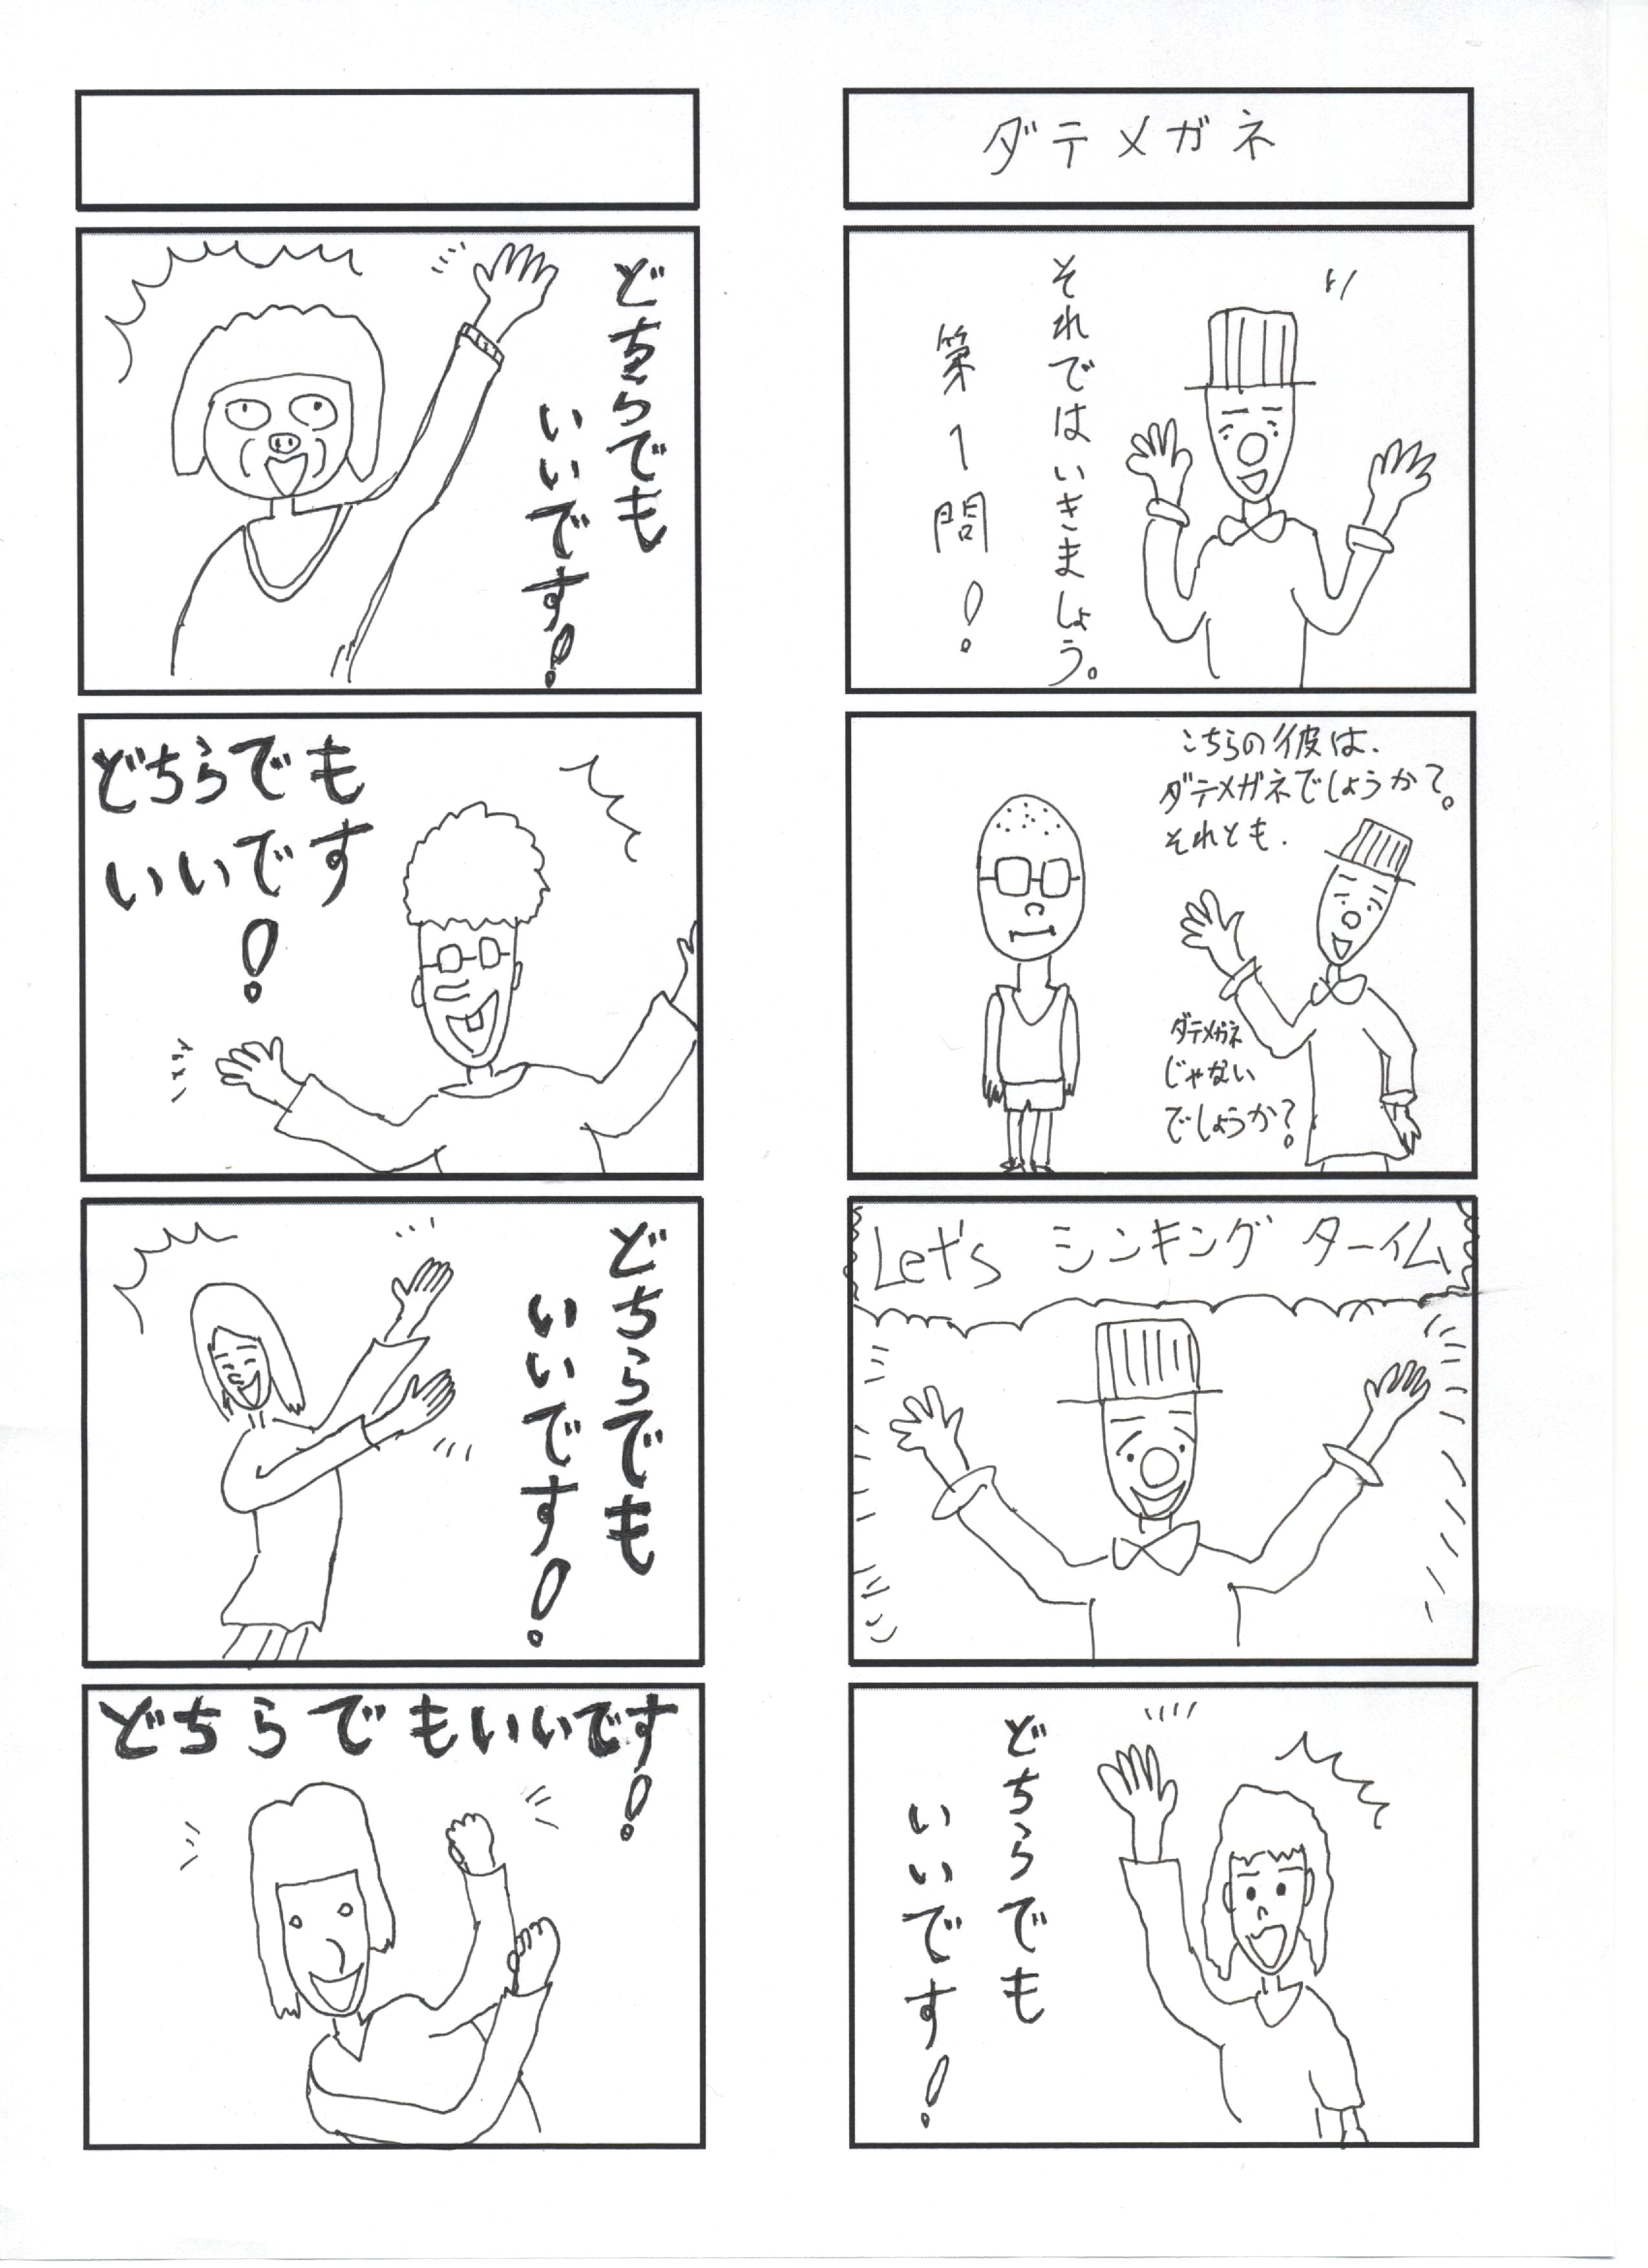 ダテメガネ
それではいきましょう。
第1問!
こちらの彼は.
ダテメガネでしょうか?。
それとも.
ダテメガネ
じゃない
でしょうか?
Let's シンキング タイム
どちらでも
いいです!
どちらでも
いいです!
どちらでも
いいです
!
どちらでも
いいです!
どちらでもいいです!